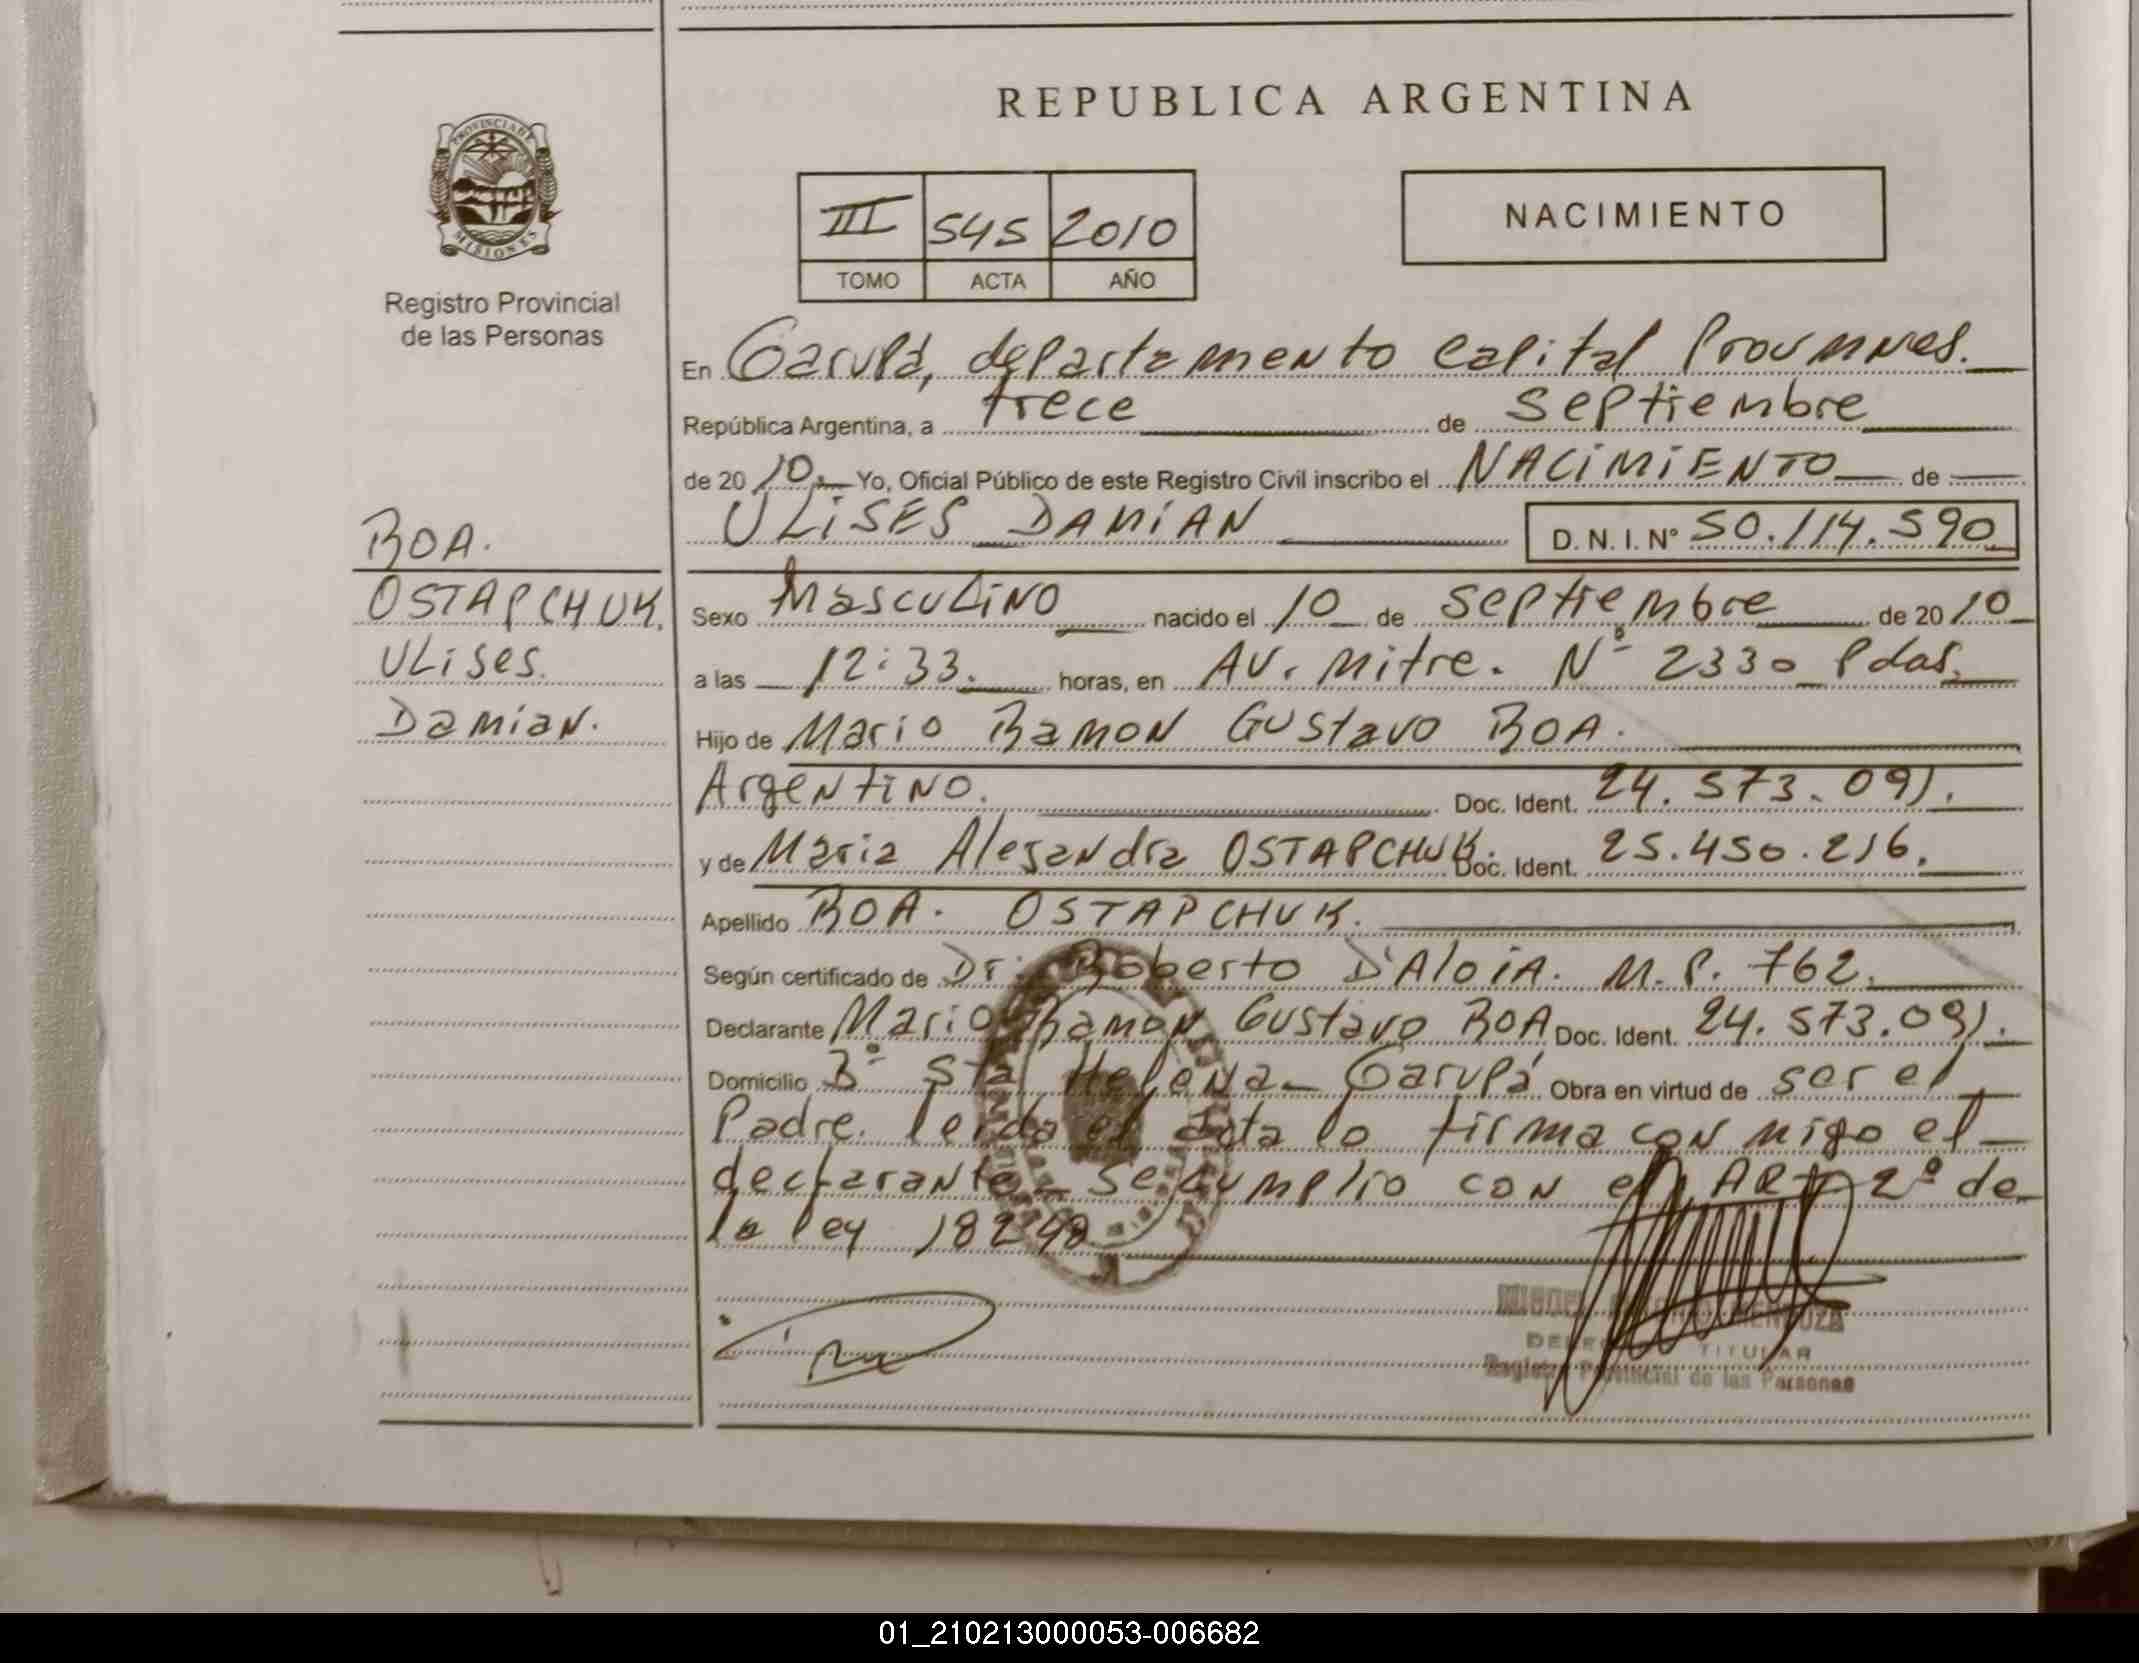 REPUBLICA ARGENTINA
PROVINCIA DE MISIONES
Registro Provincial
de las Personas
III 545 2010
TOMO ACTA AÑO
NACIMIENTO
En Garupá, departamento Capital
República Argentina, a trece de septiembre
de 2010. Yo, Oficial Público de este Registro Civil inscribo el NACIMIENTO de
ULISES DAMIAN D. N. I. N° 50.114.590
BOA.
OSTAPCHUK.
ULises.
Damian.
Sexo Masculino nacido el 10 de septiembre de 2010
a las 12:33. horas, en AV. mitre. N° 2330 Pdas.
Hijo de Mario Ramon Gustavo BOA.
Argentino. Doc. Ident. 24.573.091.
y de Maria Alejandra OSTAPCHUK. Doc. Ident. 25.450.216.
Apellido BOA. OSTAPCHUK.
Según certificado de Dr. Roberto D'AloiA. M.P. 762.
Declarante Mario Ramon Gustavo BOA Doc. Ident. 24.573.091.
Domicilio B° Sta Helena - Garupá Obra en virtud de ser el
Padre. leida el acta lo firma conmigo el
declarante - Se cumplio con el ART 2° de
la ley 18248
MENDOZA
TITULAR
Registro Provincial de las Personas
01_210213000053-006682